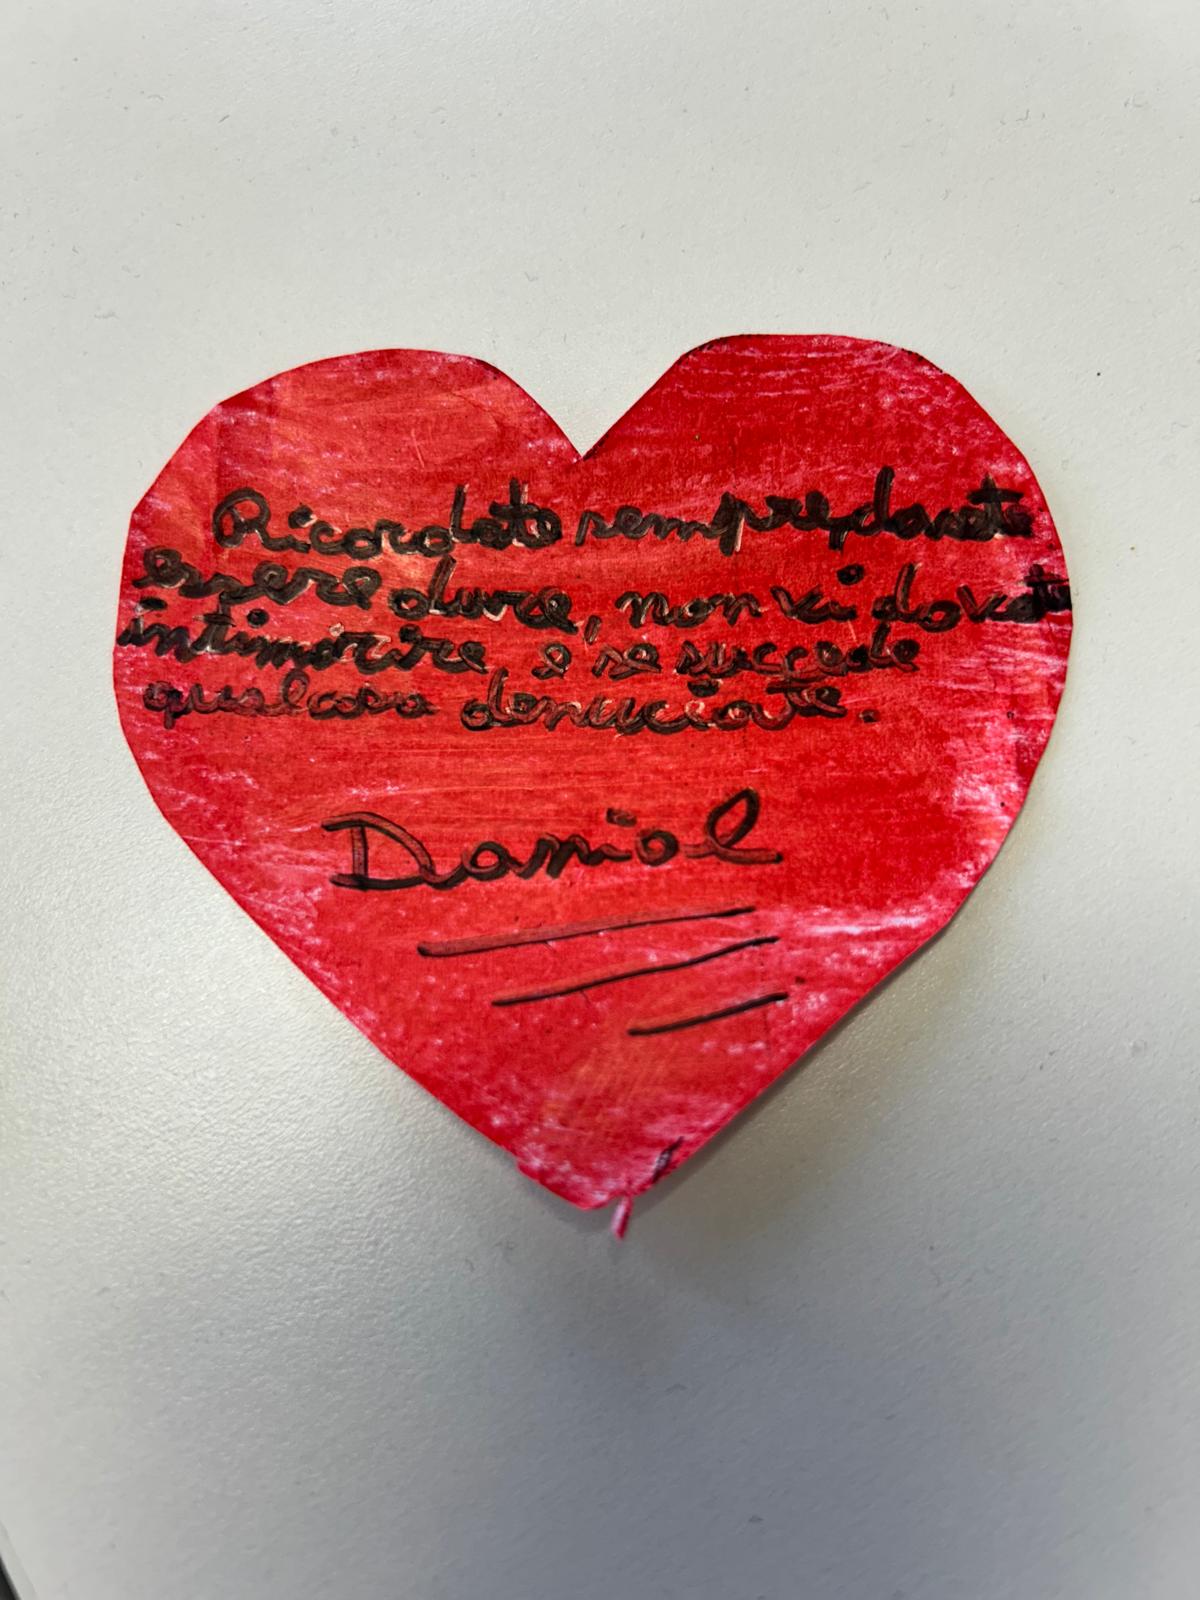 Ricordate sempre, dovete
essere dure, non vi dovete
intimorire e se succede
qualcosa denuciate.
Daniel